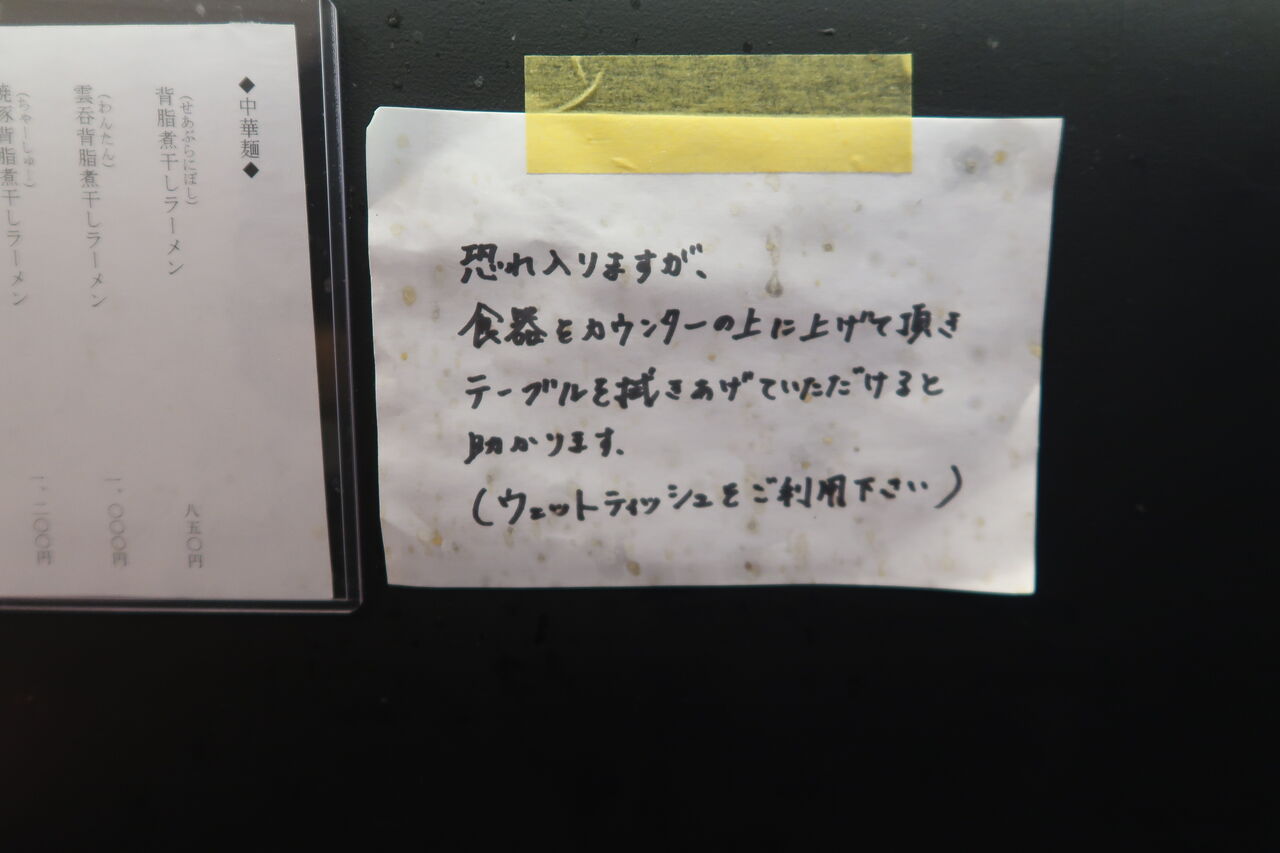 ◆中華麺◆
背脂煮干しラーメン
(せあぶらにぼし)
八五〇円
雲呑背脂煮干しラーメン
(わんたん)
一、〇〇〇円
焼豚背脂煮干しラーメン
(ちゃーしゅー)
一、二〇〇円
恐れ入りますが、
食器をカウンターの上に上げて頂き
テーブルを拭きあげていただけると
助かります。
(ウェットティッシュをご利用下さい)